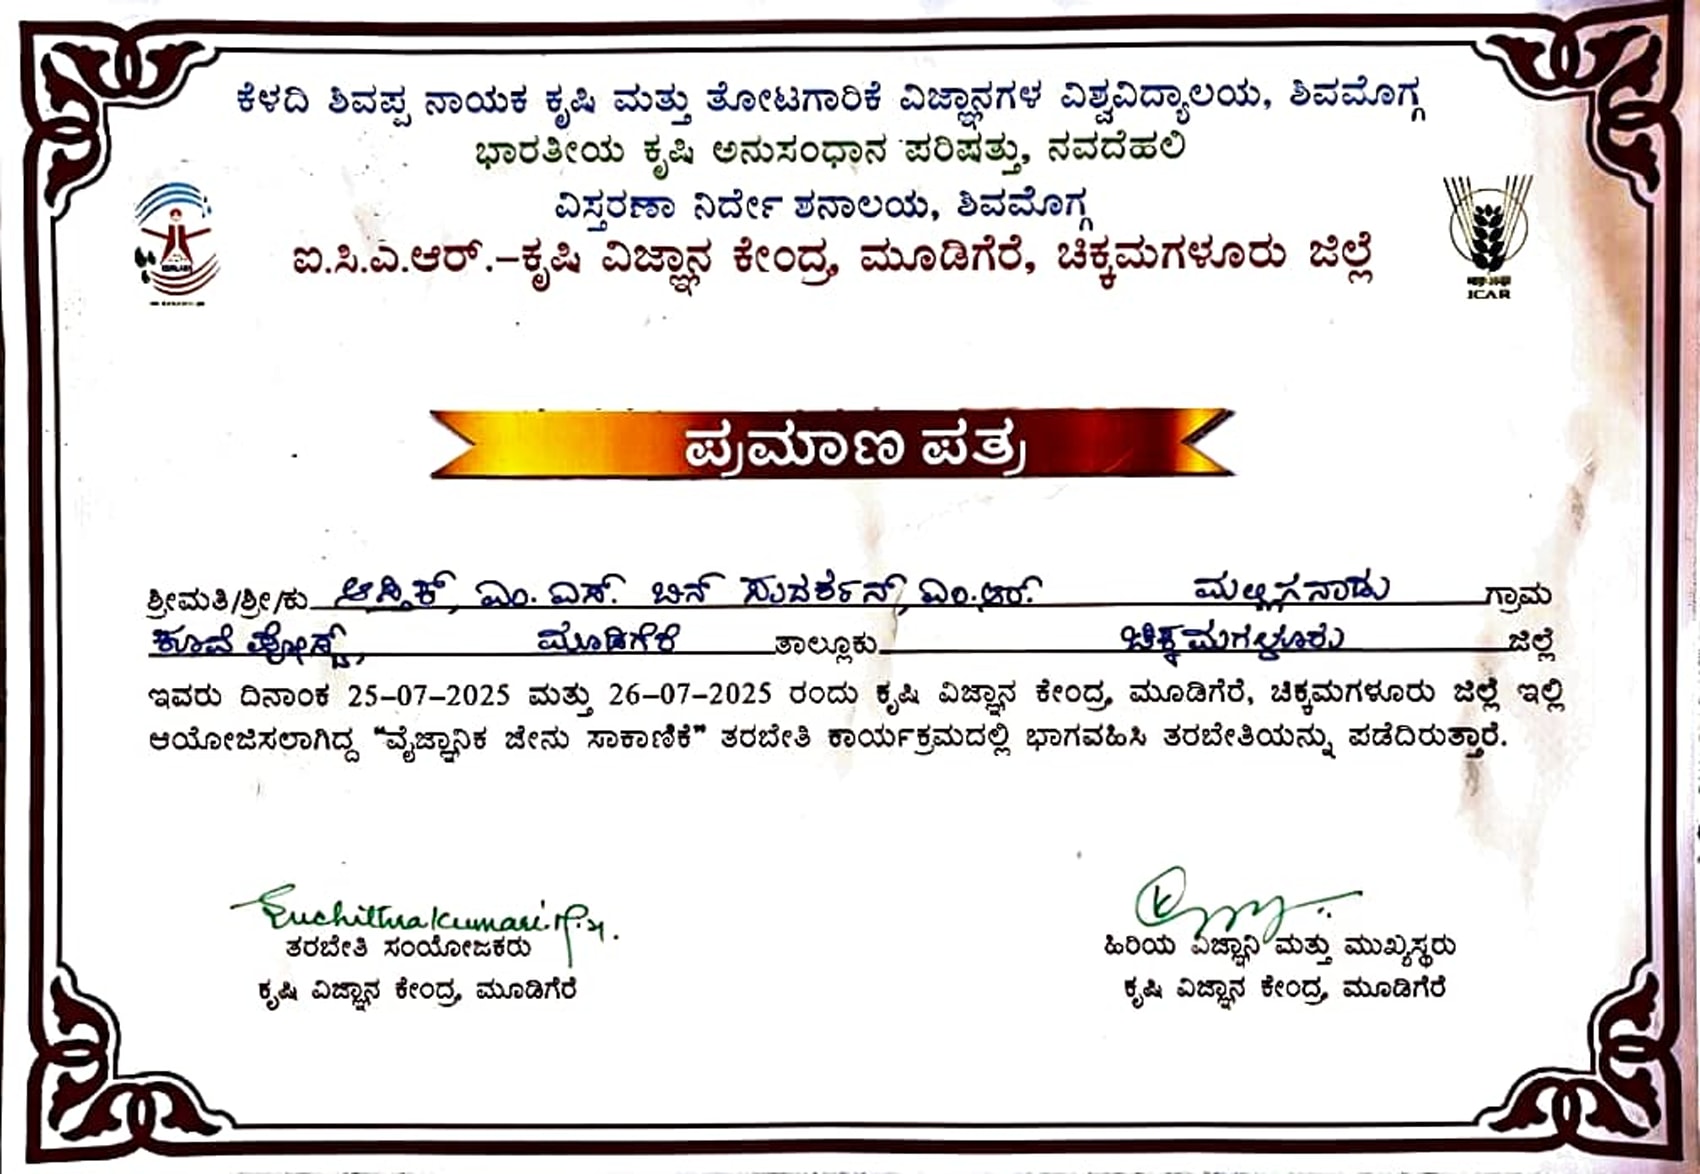 ಕೆಳದಿ ಶಿವಪ್ಪ ನಾಯಕ ಕೃಷಿ ಮತ್ತು ತೋಟಗಾರಿಕೆ ವಿಜ್ಞಾನಗಳ ವಿಶ್ವವಿದ್ಯಾಲಯ, ಶಿವಮೊಗ್ಗ
ಭಾರತೀಯ ಕೃಷಿ ಅನುಸಂಧಾನ ಪರಿಷತ್ತು, ನವದೆಹಲಿ
ವಿಸ್ತರಣಾ ನಿರ್ದೇಶನಾಲಯ, ಶಿವಮೊಗ್ಗ
ಐ.ಸಿ.ಎ.ಆರ್.-ಕೃಷಿ ವಿಜ್ಞಾನ ಕೇಂದ್ರ, ಮೂಡಿಗೆರೆ, ಚಿಕ್ಕಮಗಳೂರು ಜಿಲ್ಲೆ
ICAR
ಪ್ರಮಾಣ ಪತ್ರ
ಶ್ರೀಮತಿ/ಶ್ರೀ/ಕು ಆಸ್ತಿಕ್, ಎಂ. ಎಸ್. ಬಿನ್ ಸುದರ್ಶನ್, ಎಂ.ಆರ್. ಮಲ್ಲಸನಾಡು ಗ್ರಾಮ
ಕೂವೆ ಪೋಸ್ಟ್, ಮೂಡಿಗೆರೆ ತಾಲ್ಲೂಕು ಚಿಕ್ಕಮಗಳೂರು ಜಿಲ್ಲೆ
ಇವರು ದಿನಾಂಕ 25-07-2025 ಮತ್ತು 26-07-2025 ರಂದು ಕೃಷಿ ವಿಜ್ಞಾನ ಕೇಂದ್ರ, ಮೂಡಿಗೆರೆ, ಚಿಕ್ಕಮಗಳೂರು ಜಿಲ್ಲೆ ಇಲ್ಲಿ
ಆಯೋಜಿಸಲಾಗಿದ್ದ "ವೈಜ್ಞಾನಿಕ ಜೇನು ಸಾಕಾಣಿಕೆ" ತರಬೇತಿ ಕಾರ್ಯಕ್ರಮದಲ್ಲಿ ಭಾಗವಹಿಸಿ ತರಬೇತಿಯನ್ನು ಪಡೆದಿರುತ್ತಾರೆ.
Suchithrakumari
ತರಬೇತಿ ಸಂಯೋಜಕರು
ಕೃಷಿ ವಿಜ್ಞಾನ ಕೇಂದ್ರ, ಮೂಡಿಗೆರೆ
ಹಿರಿಯ ವಿಜ್ಞಾನಿ ಮತ್ತು ಮುಖ್ಯಸ್ಥರು
ಕೃಷಿ ವಿಜ್ಞಾನ ಕೇಂದ್ರ, ಮೂಡಿಗೆರೆ